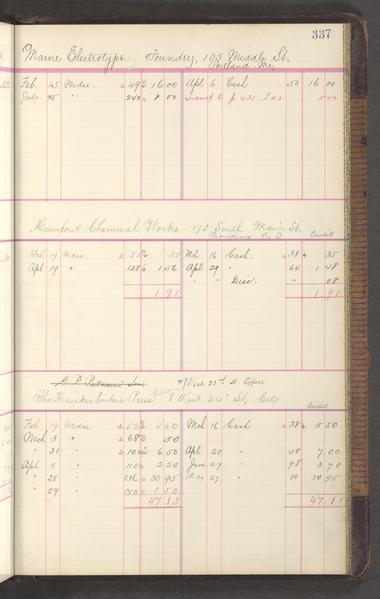 337
Maine Electrotype Foundry, 105 Middle St.
Portland Me,
Feb. 25 Mdse. 16 00 Apl 6 Cash 50 16 00
8 00 Transf to p 435. 8 00
Rumford Chemical Works. 175 South Main St.
Providence R. I. Credit
Feb 19 Mdse. 35 Mch 16 Cash. 38 35
Apl 19 " 1 56 Apl 29 " 64 1 48
" " Disc. " 08
1 91 1 91
G. P. Putnam's Sons. 27 West 23rd St. Office
The Knickerbocker Press, 8 West 24" St, City
Credit
Feb 19 Mdse 5 50 Mch 16 Cash 38 5 50
Mch 3 " 682 50
" 31 " 6 50 Apl. 20 " 55 7 00
Apl 5 " 1100 2 20 June 27 " 98 3 70
" 28 " 136 30 95 " 27 " 80 30 95
" 29 140 1 50
47.15 47.15